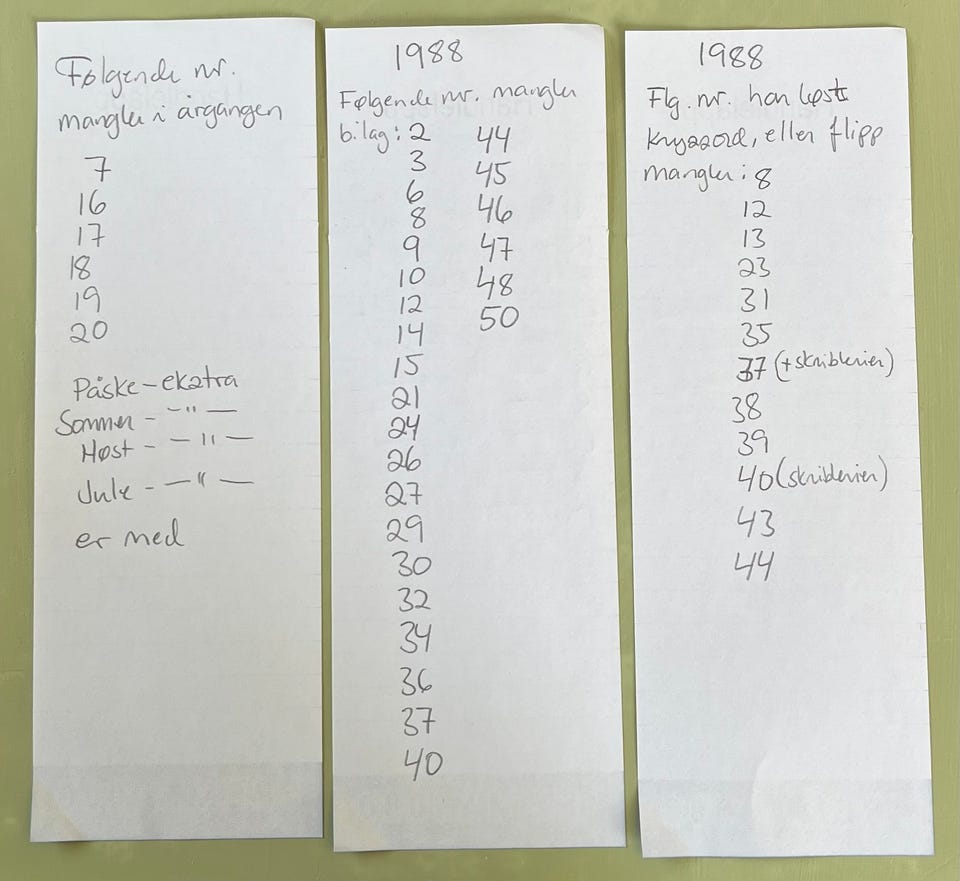 Følgende nr.
mangler i årgangen
7
16
17
18
19
20
Påske-ekstra
Sommer - -"-
Høst - -"-
Jule - -"-
er med
1988
Følgende nr. mangler
bilag: 2
3
6
8
9
10
12
14
15
21
24
26
27
29
30
32
34
36
37
40
44
45
46
47
48
50
1988
Flg. nr. har løste
kryssord, eller flipp
mangler: 8
12
13
23
31
35
37 (+skriblerier)
38
39
40 (skriblerier)
43
44